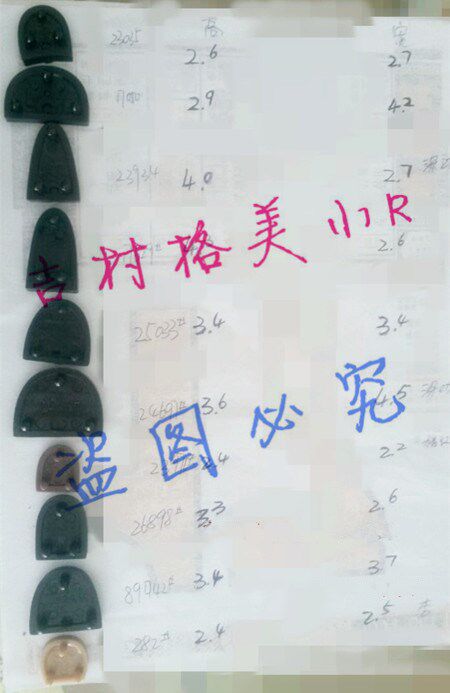 高 宽
2.6 2.7
2.9 4.2
22934 4.0 2.7
吉村格美小R
2.6
25033# 3.4 3.4
3.6
盗图必究
2.2
26898# 3.3 2.6
89042# 3.4 3.7
282# 2.4 2.5